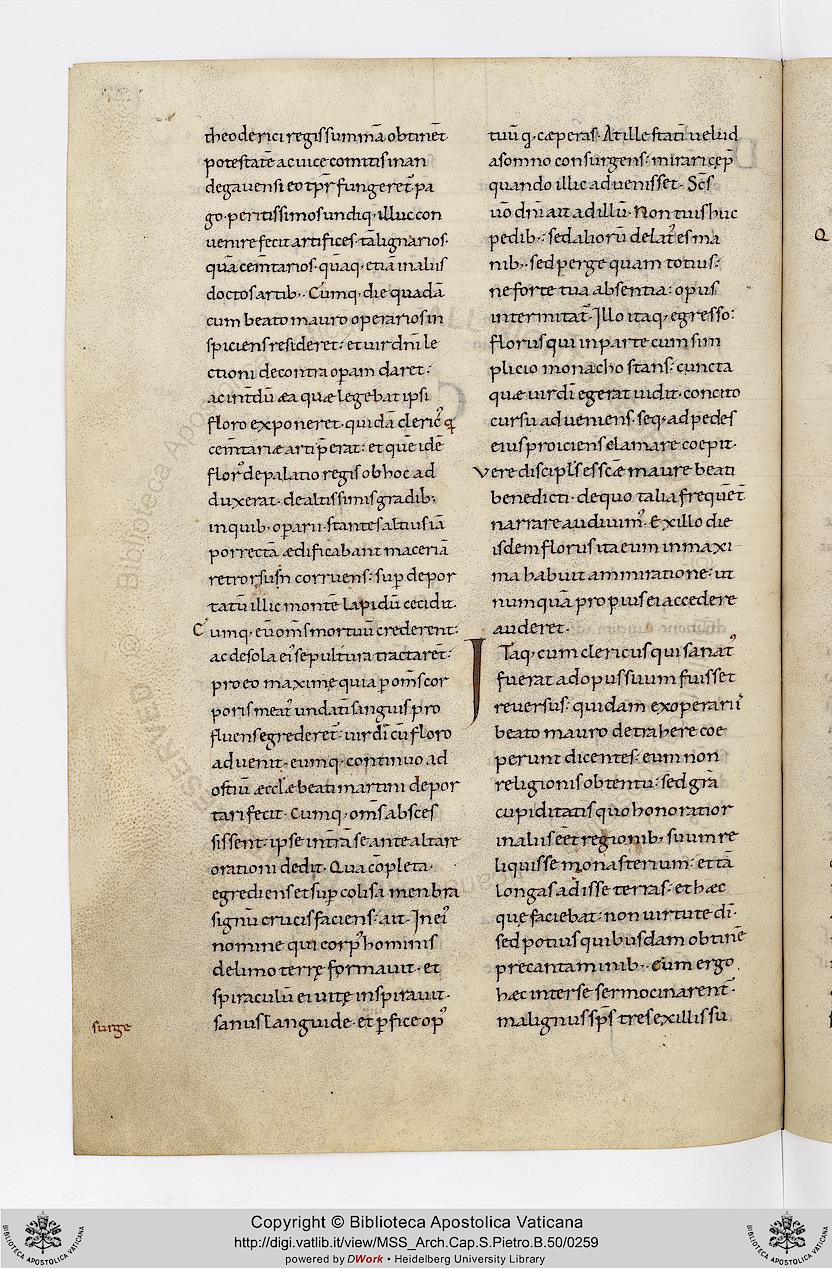 theoderici regis summā obtinēt
potestatē ac uice comitis in an
degauensi eo tp̄r fungeret̄ pa
go · peritissimos undiq; illuc con
uenire fecit artifices · tā lignarios ·
quā cem̄tarios · quāq; etiā in aliis
doctos artib; · Cumq; die quadā
cum beato mauro operarios in
spiciens resideret : et uir dn̄i le
ctioni de contra operam daret :
ac intdū ea quæ legebat ipsi
floro exponeret · quidā cleric᾽ q
cem̄tariæ arti p̄erat : et quē idē
flor᾽ de palatio regis ob hoc ad
duxerat · de altissimis gradib;
inquib; oparii stantes altius iā
porrectā ædificabant maceriā
retrorsum corruens : sup depor
tatū illic montē lapidū cecidit ·
Cumq; eū om̄s mortuū crederent :
ac de sola ei᾽ sepultura tractarēt :
pro eo maxime quia p om̄s cor
poris meat᾽ undatī sanguis pro
fluens egrederet̄ : uir dī cū floro
aduenit · eumq; continuo ad
ostiū æccl̄æ beati martini depor
tari fecit · Cumq; om̄s absces
sissent · ipse intrā se ante altare
orationi dedit · Qua cōpleta ·
egrediens et sup colisa menbra
signū crucis faciens : ait · In ei᾽
nomine qui corp᾽ hominis
de limo terrę formauit · et
spiraculū ei uitę inspirauit ·
surge
sanus languide · et pfice op᾽
tuū q; cæperas · At ille stati uelud
a somno consurgens : mirari cęp̄
quando illic aduenisset · Sc̄s
uō dn̄i ait ad illū · Non tuis huc
pedib; : sed alioru delat᾽ es ma
nib; · sed perge quam totius :
ne forte tua absentia : opus
intermitat̄ · Illo itaq; egresso :
florus qui in parte cum sim
plicio monacho stans : cuncta
quæ uir dī egerat uidit · concito
cursu adueniens · seq; ad pedes
eius proiciens clamare coepit ·
Vere discipl̄s es sc̄æ maure beati
benedicti · de quo talia frequēt
narrare audiuim᾽ · Ex illo die
isdem florus ita eum in maxi
ma habuit ammiratione : ut
numquā propius ei accedere
auderet ·
ITaq; cum clericus qui sanat᾽
fuerat ad opus suum fuisset
reuersus : quidam ex operariis
beato mauro detrahere coe
perunt dicentes : eum non
religionis obtentu : sed grā
cupiditatis quo honoratior
in aliis eēt regionib; suum re
liquisse monasterium : et tā
longas adisse terras · et hæc
que faciebat : non uirtute dī ·
sed potius quibusdam obtinē
precantaminib; · Cum ergo
hæc inter se sermocinarent̄ ·
malignus sp̄s tres ex illis su
Q
Copyright © Biblioteca Apostolica Vaticana
http://digi.vatlib.it/view/MSS_Arch.Cap.S.Pietro.B.50/0259
powered by DWork • Heidelberg University Library